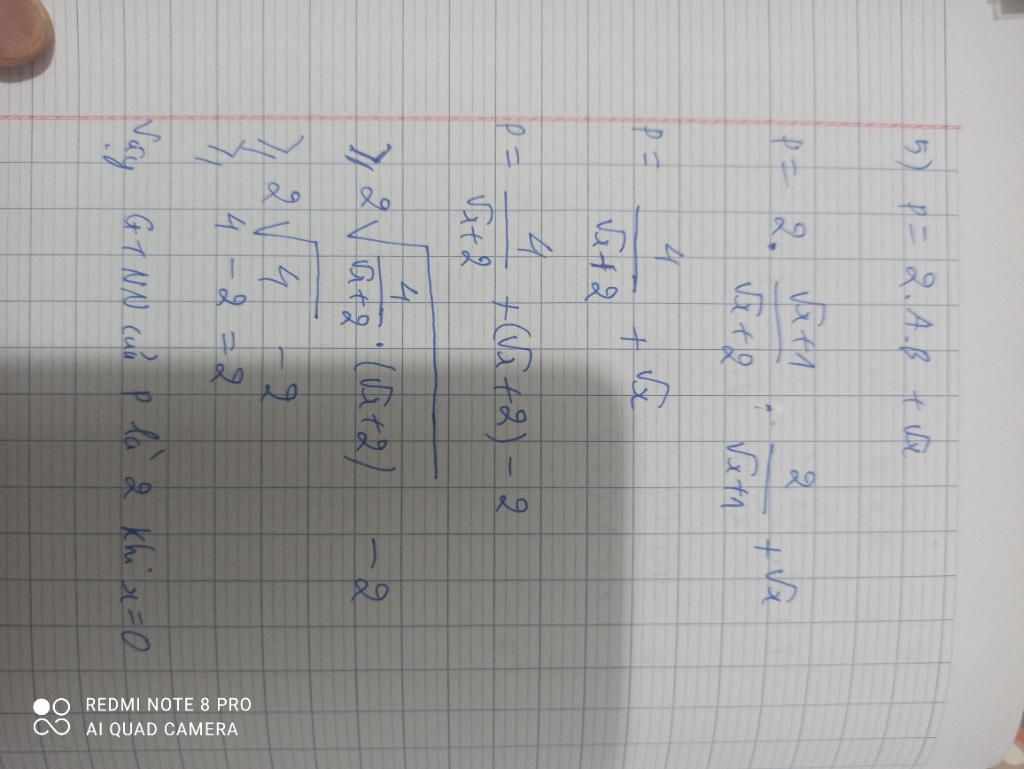 5) P = 2.A.B + √x
P = 2. (√x+1)/(√x+2) . 2/(√x+1) + √x
P = 4/(√x+2) + √x
P = 4/(√x+2) + (√x+2) - 2
⩾ 2√(4/(√x+2) . (√x+2)) - 2
⩾ 2√4 - 2
⩾ 4 - 2 = 2
Vậy GTNN của P là 2 khi x=0
REDMI NOTE 8 PRO
AI QUAD CAMERA